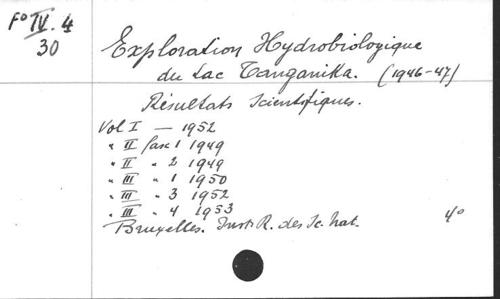 Fo IV. 4
30
Exploration Hydrobiologique
du Lac Tanganika. (1946-47)
Résultats Scientifiques.
Vol I — 1952
" II fasc 1 1949
" II " 2 1949
" III " 1 1950
" III " 3 1952
" III " 4 1953
Bruxelles. Inst. R. des Sc. Nat. 4o